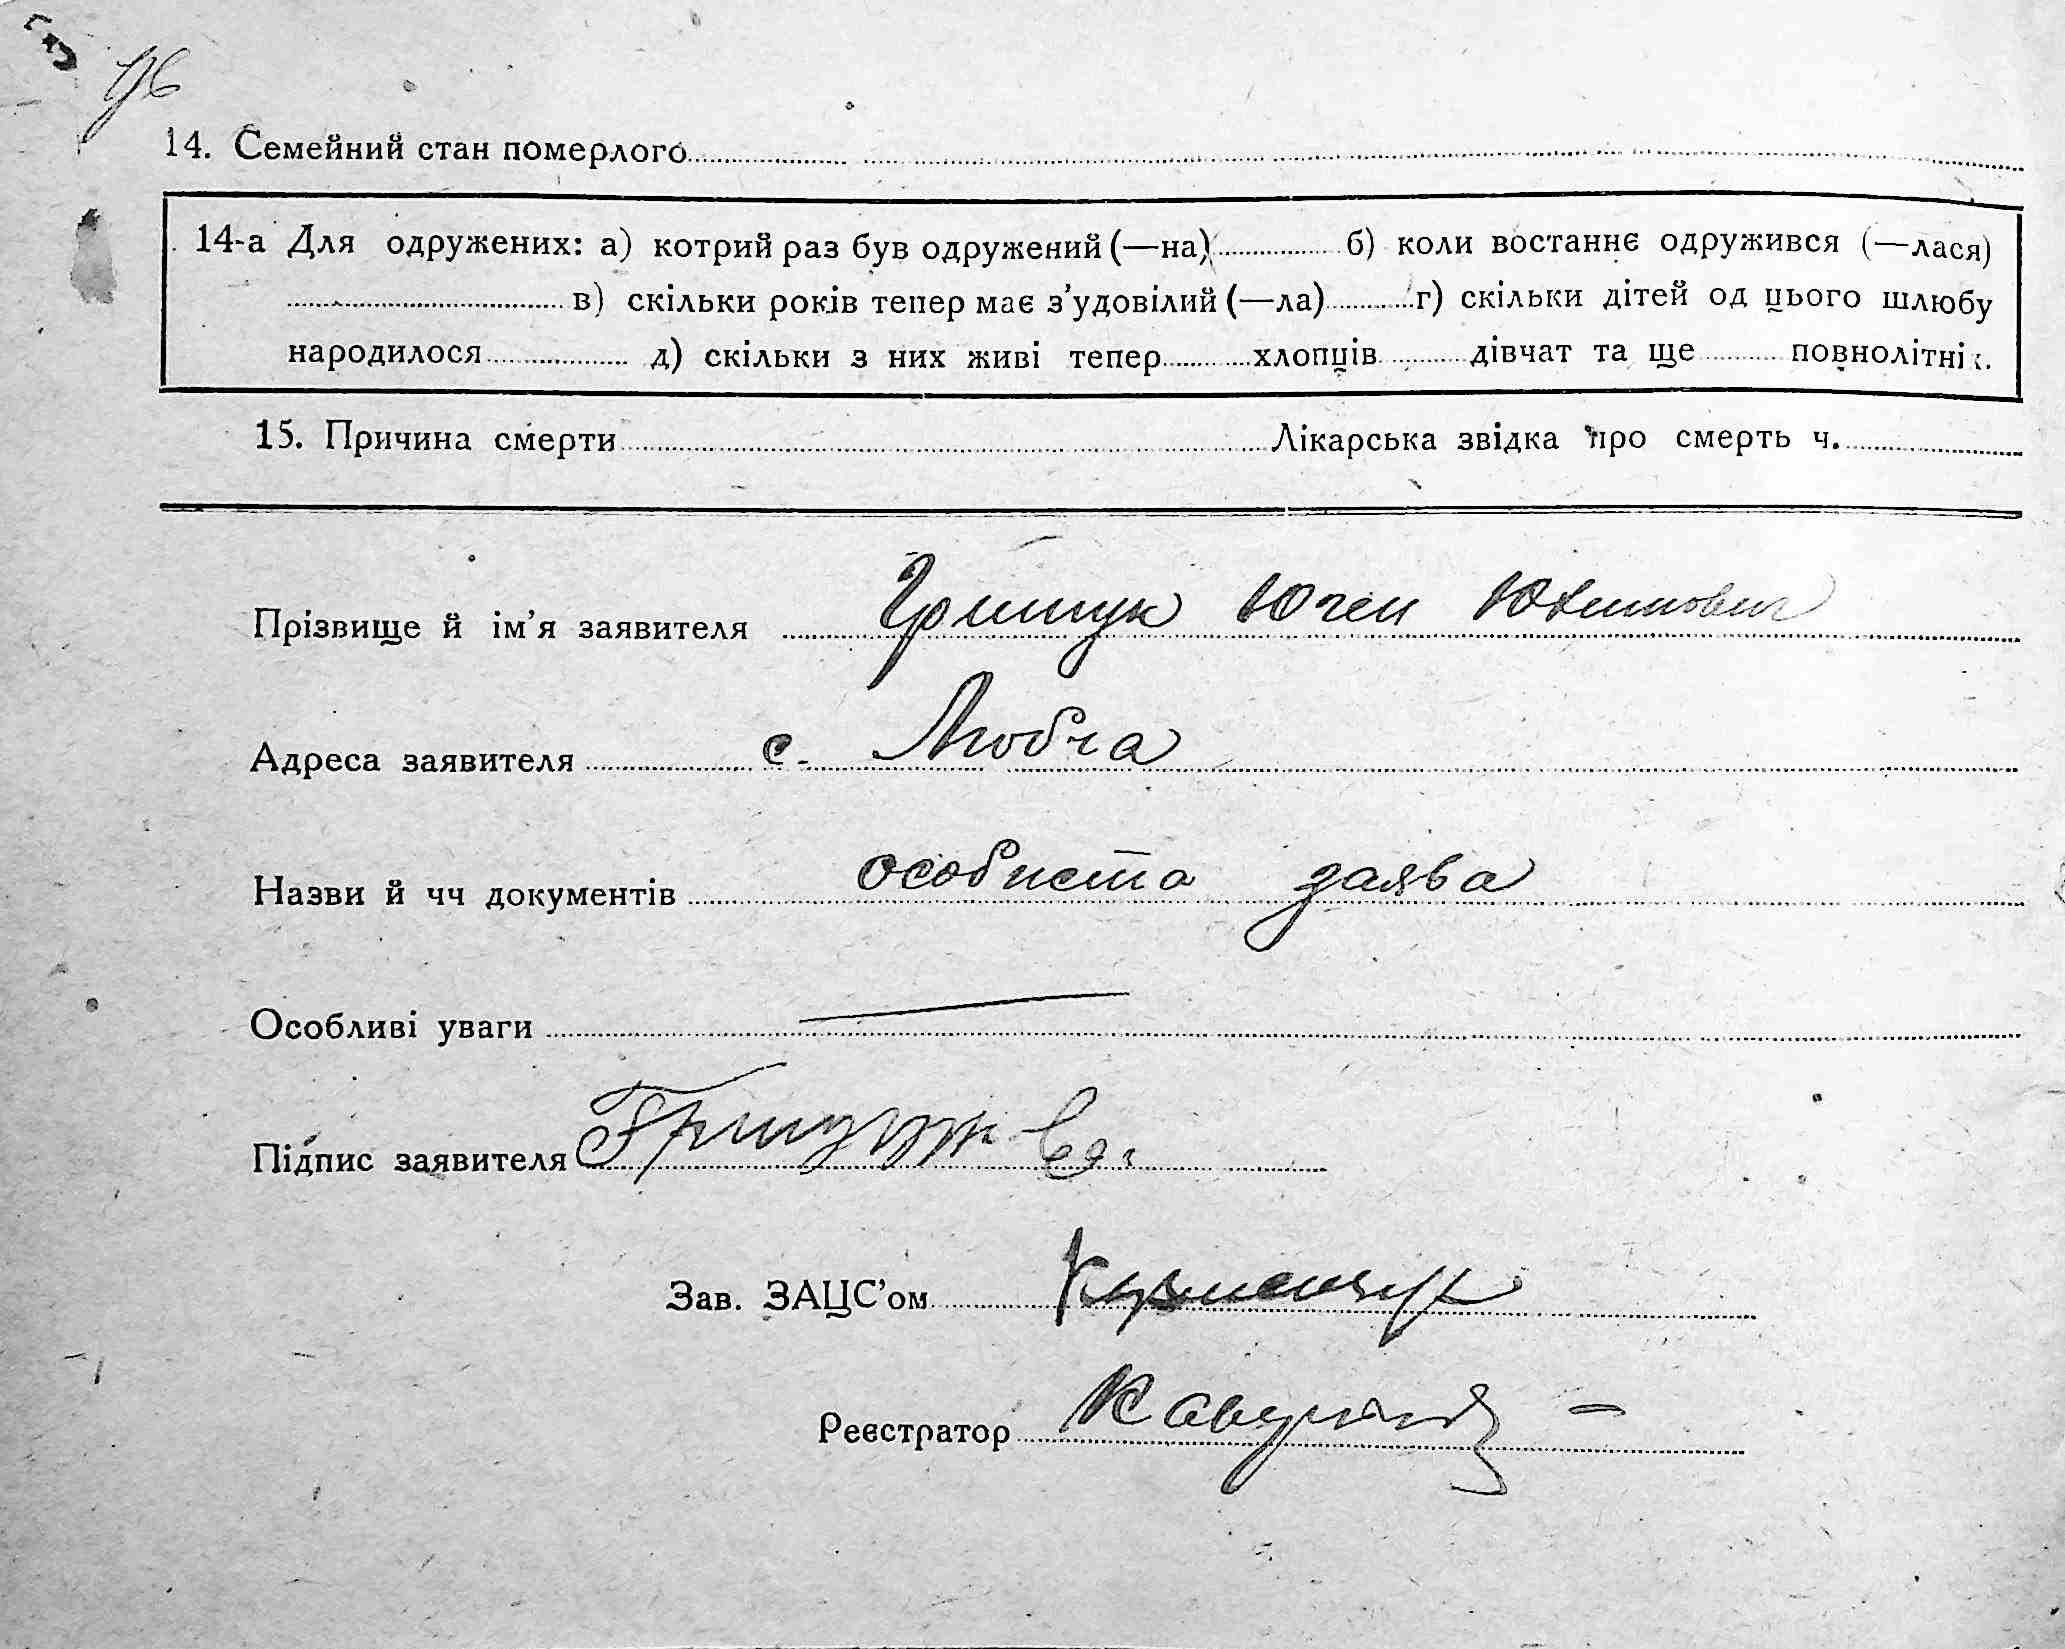 96
14. Семейний стан померлого
14-а Для одружених: а) котрий раз був одружений (—на) б) коли востаннє одружився (—лася)
в) скільки років тепер має з’удовілий (—ла) г) скільки дітей од цього шлюбу
народилося д) скільки з них живі тепер хлопців дівчат та ще повнолітніх.
15. Причина смерти Лікарська звідка про смерть ч.
Прізвище й ім’я заявителя Грищук Юхим
Адреса заявителя с. Любча
Назви й чч документів особиста заява
Особливі уваги
Підпис заявителя
Зав. ЗАЦС’ом
Реєстратор